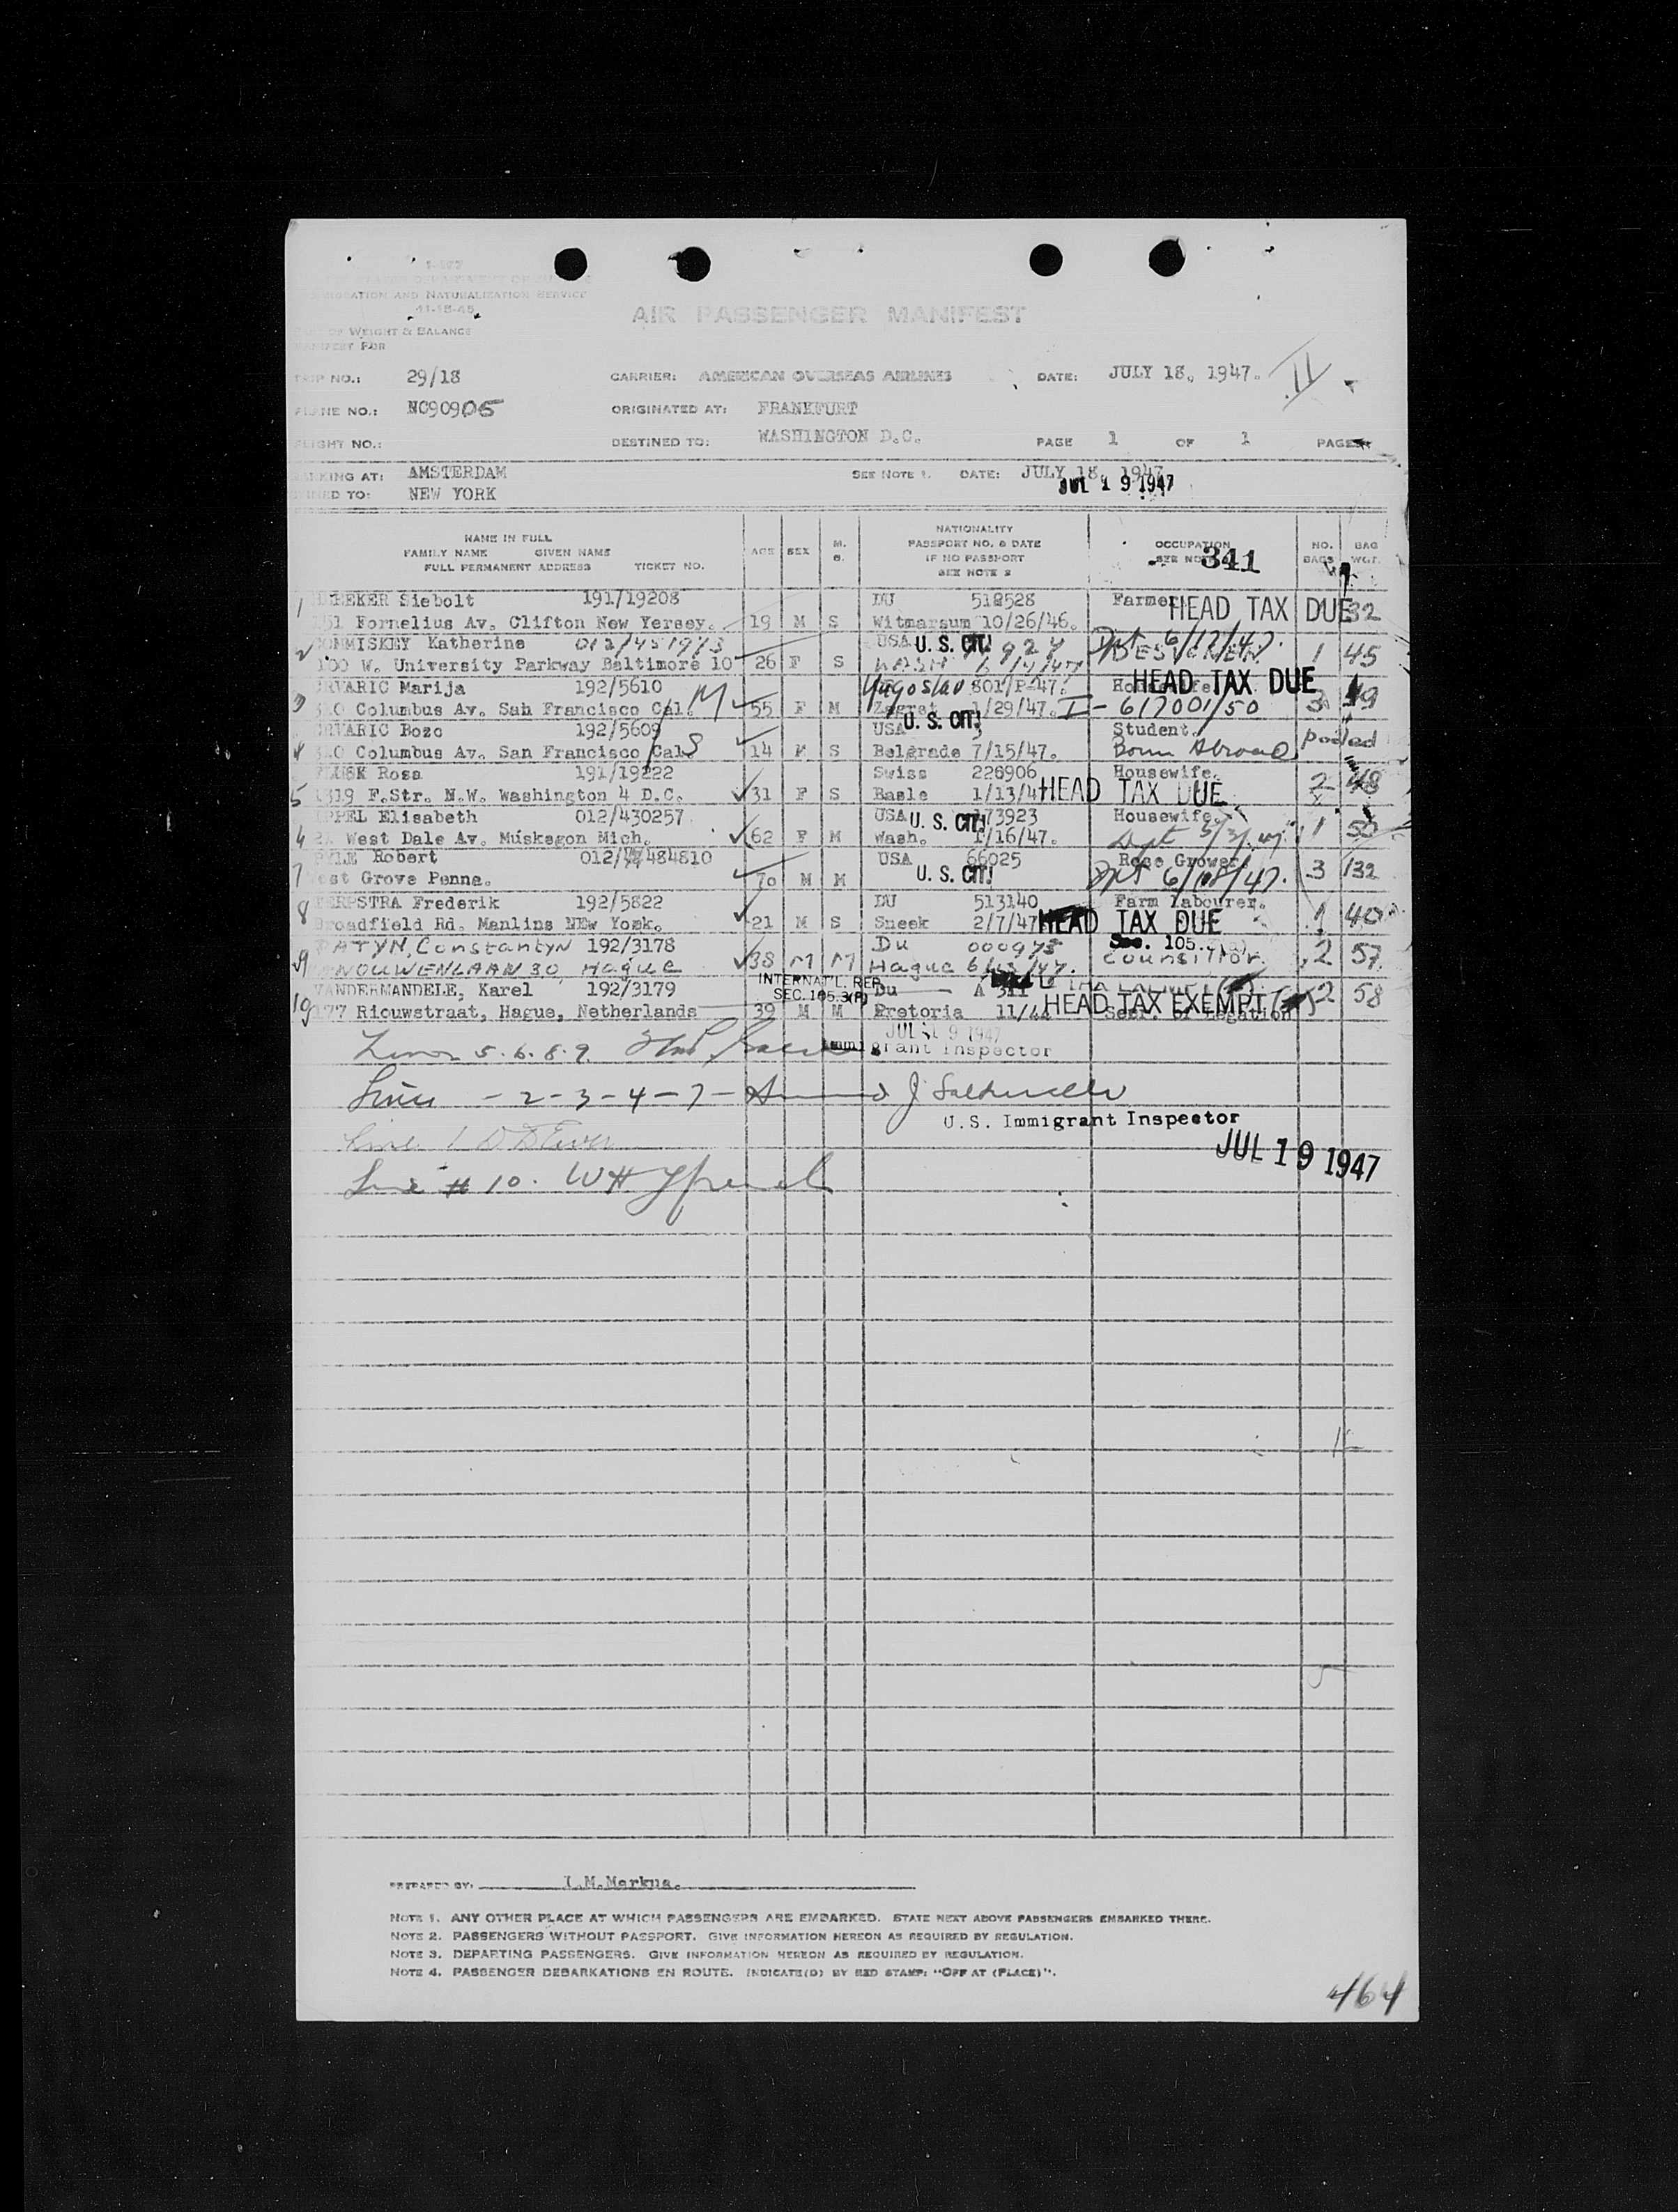 IMMIGRATION AND NATURALIZATION SERVICE
11-18-45
OF WEIGHT & BALANCE
MANIFEST FOR
AIR PASSENGER MANIFEST
TRIP NO.: 29/18 CARRIER: AMERICAN OVERSEAS AIRLINES DATE: JULY 18, 1947. II
PLANE NO.: NC90906 ORIGINATED AT: FRANKFURT
FLIGHT NO.: DESTINED TO: WASHINGTON D.C. PAGE 1 OF 1 PAGES
AMSTERDAM SEE NOTE 1. DATE: JULY 18, 1947
NEW YORK JUL 19 1947
NAME IN FULL
FAMILY NAME GIVEN NAME
FULL PERMANENT ADDRESS TICKET NO.
AGE SEX M. S.
NATIONALITY
PASSPORT NO. & DATE
IF NO PASSPORT
SEE NOTE 2
OCCUPATION
341
NO. BAGS BAG WGT.
1 Siebolt 191/19208 DU 518528 Farmer HEAD TAX DUE 32
51 Fornelius Av. Clifton New Yersey. 19 M S Witmarsum 10/26/46.
2 COMMISKEY Katherine 012/451973 USA U. S. CIT. Dpt 6/17/47.
W. University Parkway Baltimore 10 26 F S WASH 1 45
3 RVARIC Marija 192/5610 M Yugoslav 801/P-47. HEAD TAX DUE
Columbus Av. Sah Francisco Cal. 55 F M Zagret 1/29/47. I- 617001/50 3
4 RVARIC Bozo 192/5609 USA U. S. CIT. Student. pooled
Columbus Av. San Francisco Cal. S 14 M S Belgrade 7/15/47. Born Abroad
5 Rosa 191/19222 Swiss 228906 Housewife. 2 48
1319 F.Str. N.W. Washington 4 D.C. 31 F S Basle 1/13/4 HEAD TAX DUE
PPEL Elisabeth 012/430257 USA U. S. CIT. 73923 Housewife. 1 50
West Dale Av. Muskegon Mich. 62 F M Wash. 1/16/47.
7 PYLE Robert 012/484810 USA 66025 Rose Grower 3 132
est Grove Penna. 70 M M U. S. CIT. Dpt 6/18/47.
8 TERPSTRA Frederik 192/5822 DU 513140 Farm labourer. 1 40
Broadfield Rd. Manlins NEw York. 21 M S Sneek 2/7/47 HEAD TAX DUE
9 PATYN, Constantyn 192/3178 Du 000975 Sec. 105. 2 57
NOUWENLAAN 30 Hague 38 M M Hague
10 VANDERMANDELE, Karel 192/3179 INTERNAT'L. REP. SEC. 105.3(P) Du A 311 2 58
177 Riouwstraat, Hague, Netherlands 39 M M Pretoria 11/44 HEAD TAX EXEMPT
Lines 5.6.8.9. JUL 19 1947
Immigrant Inspector
Lines -2-3-4-7-
U.S. Immigrant Inspector
Line 1 JUL 19 1947
Line # 10.
PREPARED BY:
NOTE 1. ANY OTHER PLACE AT WHICH PASSENGERS ARE EMBARKED. STATE NEXT ABOVE PASSENGERS EMBARKED THERE.
NOTE 2. PASSENGERS WITHOUT PASSPORT. GIVE INFORMATION HEREON AS REQUIRED BY REGULATION.
NOTE 3. DEPARTING PASSENGERS. GIVE INFORMATION HEREON AS REQUIRED BY REGULATION.
NOTE 4. PASSENGER DEBARKATIONS EN ROUTE. INDICATE(D) BY RED STAMP: "OFF AT (PLACE)".
464